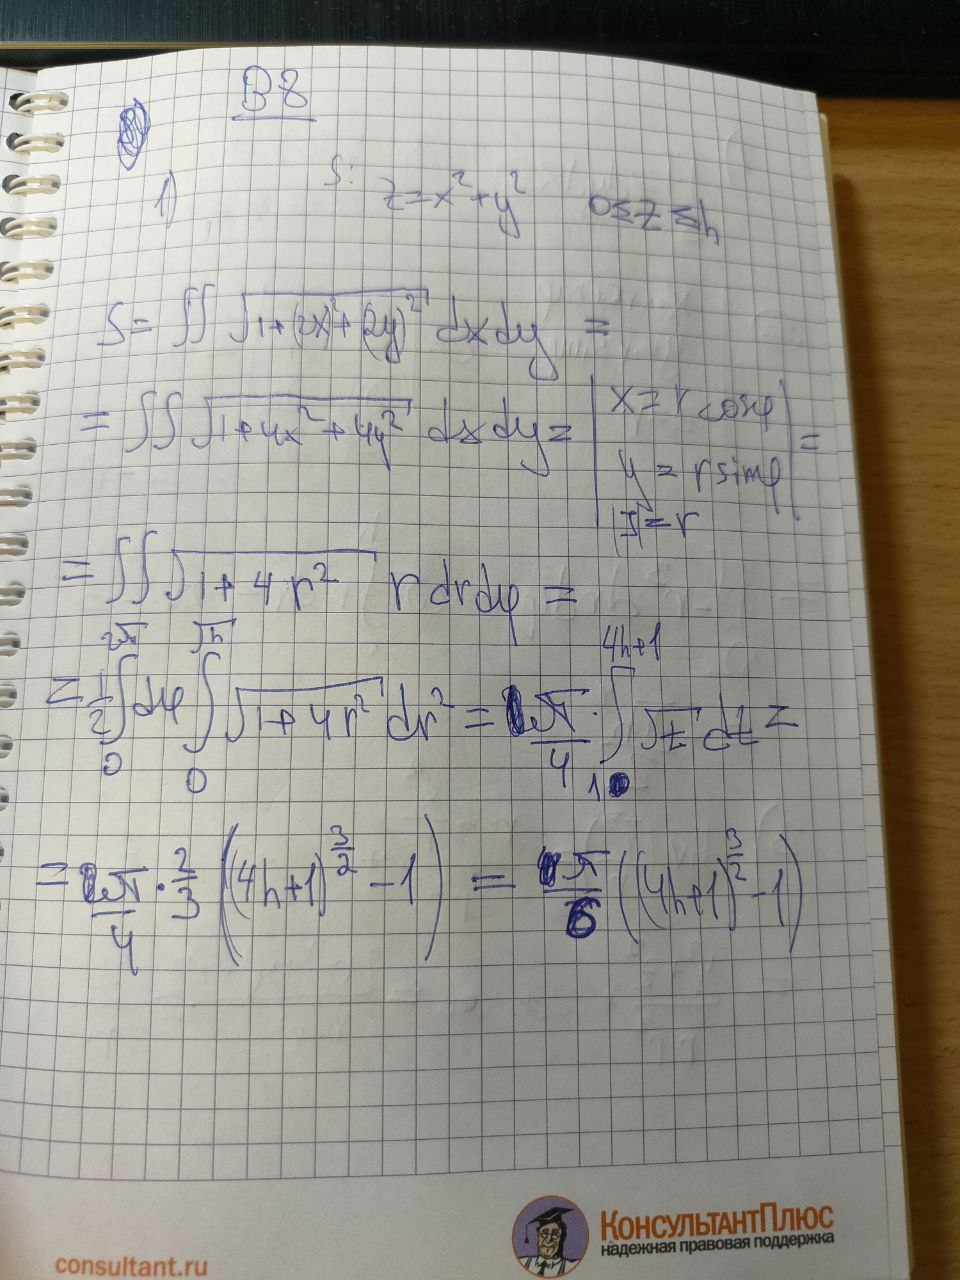 В8
1) S: z = x² + y² 0 ≤ z ≤ h
S = ∬ √(1+(2x)²+(2y)²) dxdy =
= ∬ √(1+4x²+4y²) dxdy = | x = r cosφ
y = r sinφ
|J| = r | =
= ∬ √(1+4r²) r dr dφ =
= 1/2 ∫₀^{2π} dφ ∫₀^{√h} √(1+4r²) dr² = π/4 · ∫₁^{4h+1} √t dt =
= π/4 · 2/3 ((4h+1)^{3/2} − 1) = π/6 ((4h+1)^{3/2} − 1)
consultant.ru
КонсультантПлюс
надежная правовая поддержка